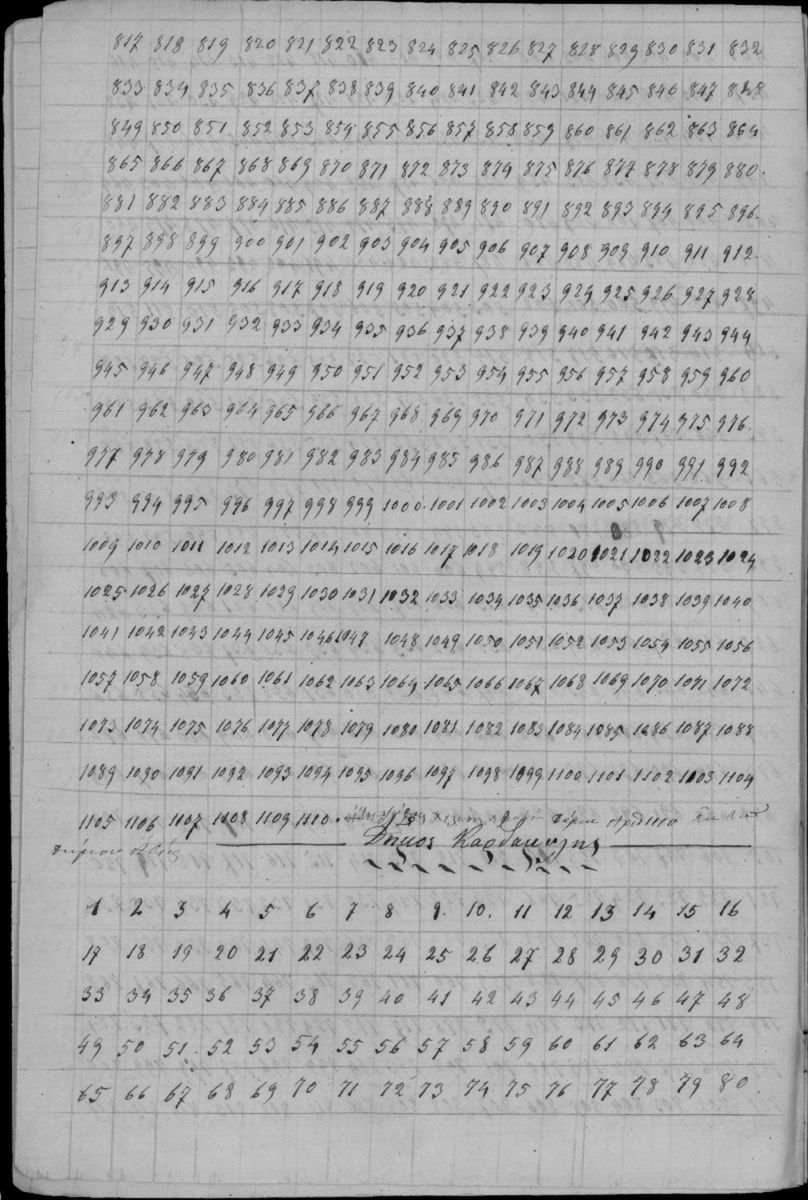 817 818 819 820 821 822 823 824 825 826 827 828 829 830 831 832
833 834 835 836 837 838 839 840 841 842 843 844 845 846 847 848
849 850 851 852 853 854 855 856 857 858 859 860 861 862 863 864
865 866 867 868 869 870 871 872 873 874 875 876 877 878 879 880
881 882 883 884 885 886 887 888 889 890 891 892 893 894 895 896
897 898 899 900 901 902 903 904 905 906 907 908 909 910 911 912
913 914 915 916 917 918 919 920 921 922 923 924 925 926 927 928
929 930 931 932 933 934 935 936 937 938 939 940 941 942 943 944
945 946 947 948 949 950 951 952 953 954 955 956 957 958 959 960
961 962 963 964 965 966 967 968 969 970 971 972 973 974 975 976
977 978 979 980 981 982 983 984 985 986 987 988 989 990 991 992
993 994 995 996 997 998 999 1000 1001 1002 1003 1004 1005 1006 1007 1008
1009 1010 1011 1012 1013 1014 1015 1016 1017 1018 1019 1020 1021 1022 1023 1024
1025 1026 1027 1028 1029 1030 1031 1032 1033 1034 1035 1036 1037 1038 1039 1040
1041 1042 1043 1044 1045 1046 1047 1048 1049 1050 1051 1052 1053 1054 1055 1056
1057 1058 1059 1060 1061 1062 1063 1064 1065 1066 1067 1068 1069 1070 1071 1072
1073 1074 1075 1076 1077 1078 1079 1080 1081 1082 1083 1084 1085 1086 1087 1088
1089 1090 1091 1092 1093 1094 1095 1096 1097 1098 1099 1100 1101 1102 1103 1104
1105 1106 1107 1108 1109 1110
Δήμος Καρδακύλης
1 2 3 4 5 6 7 8 9 10 11 12 13 14 15 16
17 18 19 20 21 22 23 24 25 26 27 28 29 30 31 32
33 34 35 36 37 38 39 40 41 42 43 44 45 46 47 48
49 50 51 52 53 54 55 56 57 58 59 60 61 62 63 64
65 66 67 68 69 70 71 72 73 74 75 76 77 78 79 80